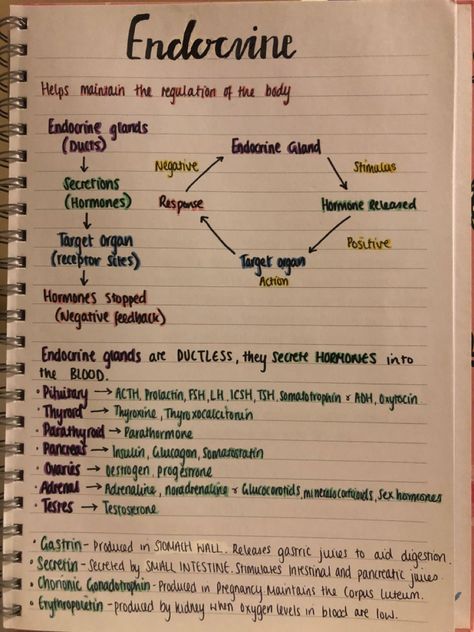 Endocrine
Helps maintain the regulation of the body
Endocrine glands
(Ducts)
Secretions
(Hormones)
Target organ
(receptor sites)
Hormones stopped
(Negative feedback)
Endocrine Gland
Stimulus
Hormone Released
Positive
Target organ
Action
Response
Negative
Endocrine glands are DUCTLESS, they secrete HORMONES into
the BLOOD.
• Pituitary → ACTH, Prolactin, FSH, LH, ICSH, TSH, Somatotrophin & ADH, Oxytocin
• Thyroid → Thyroxine, Thyroxocalcitonin
• Parathyroid → Parathormone
• Pancreas → Insulin, Glucagon, Somatostatin
• Ovaries → Oestrogen, progestrone
• Adrenal → Adrenaline, noradrenaline & Glucocorotids, mineralocorticoids, Sex hormones
• Testes → Testoserone
• Gastrin - Produced in STOMACH WALL. Releases gastric juices to aid digestion.
• Secretin - Secreted by SMALL INTESTINE. Stimulates intestinal and pancreatic juices
• Chorionic Gonadotrophin - Produced in Pregnancy. Maintains the Corpus Luteum.
• Erythropoietin - produced by kidney when oxygen levels in blood are low.